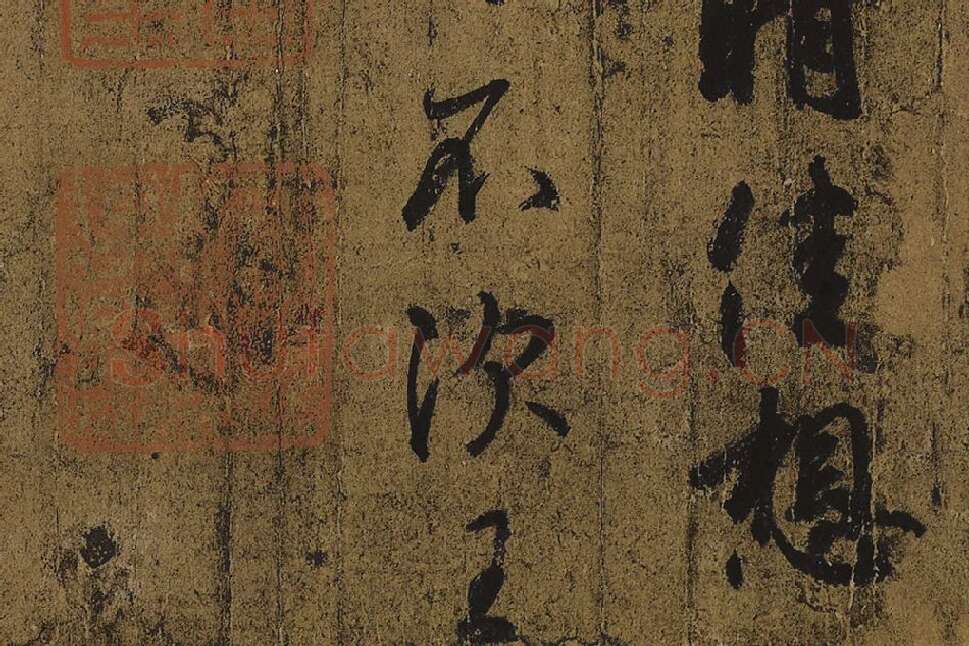 晴佳想
不次王
Shufawang.CN